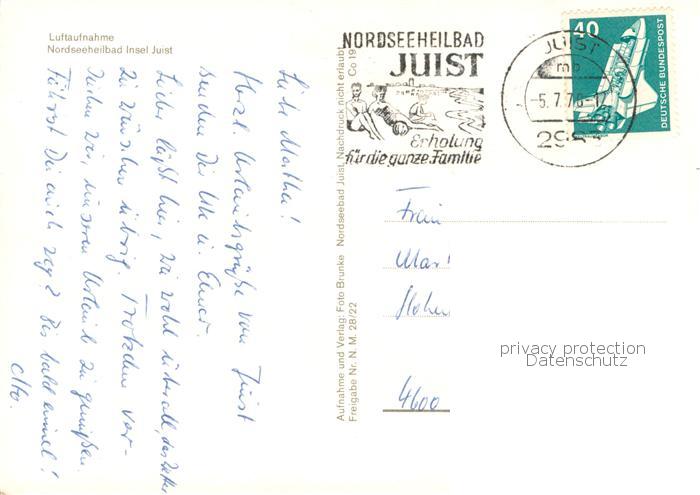 Luftaufnahme
Nordseeheilbad Insel Juist
Liebe Martha!
Herzl. Urlaubsgrüße von Juist
senden Dir Ute u. Elmar.
Leider läßt hier, wie wohl überall, das Wetter
zu wünschen übrig. Trotzdem ver-
suchen wir, unseren Urlaub zu genießen.
Fährst Du auch weg? Bis bald einmal!
Aufnahme und Verlag: Foto Brunke Nordseebad Juist, Nachdruck nicht erlaubt
Freigabe Nr. N. M. 28/22 Co 19
NORDSEEHEILBAD
JUIST
Erholung
für die ganze Familie
JUIST
mb
-5.7.76-1
298
40
DEUTSCHE BUNDESPOST
Frau
4600
privacy protection
Datenschutz